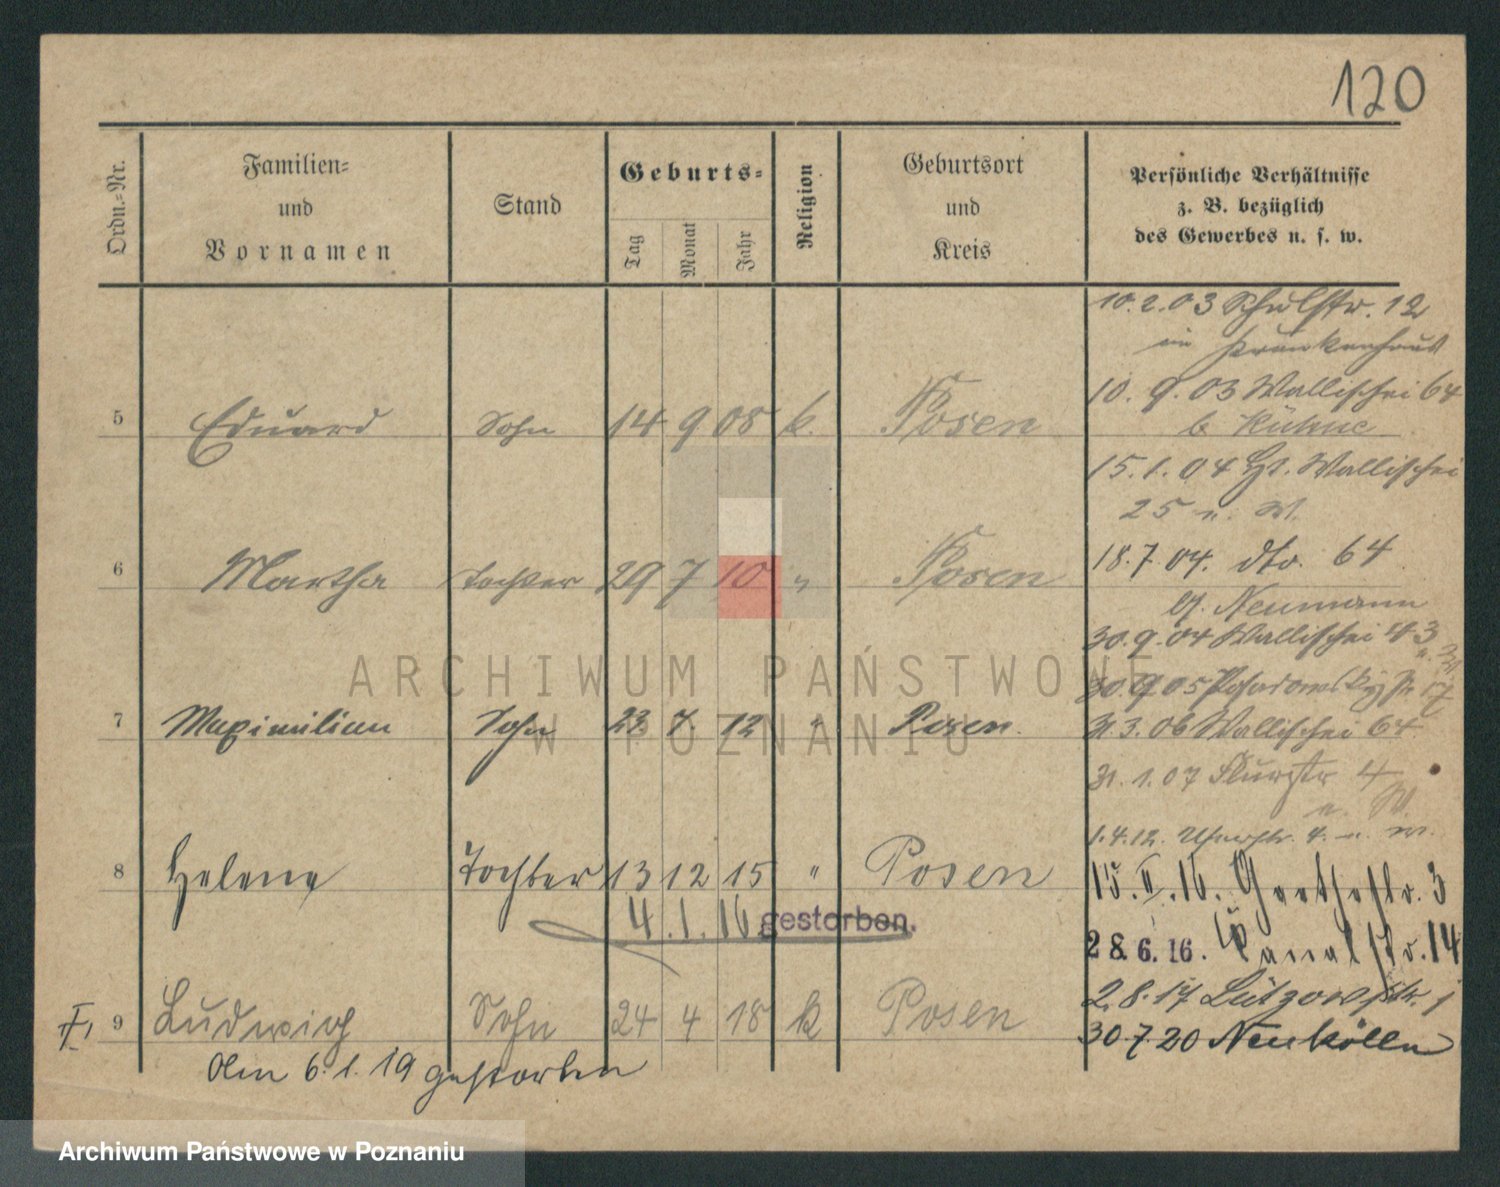 120
Ordn.-Nr.
Familien-
und
Vornamen
Stand
Geburts-
Tag
Monat
Jahr
Religion
Geburtsort
und
Kreis
Persönliche Verhältnisse
z. B. bezüglich
des Gewerbes u. s. w.
10.2.03 Schulstr. 12
im Krankenhaus
10. 9. 03 Wallischei 64
b Kühne
5 Eduard Sohn 14 9 08 k. Posen
15. 1. 04 Wallischei
25 u. W.
18.7.04. dto. 64
6 Martha Tochter 29 7 10 " Posen
Neumann
30.9.04 Wallischei 43
30.9.05 17
7 Maximilian Sohn 23. 7. 12 " Posen.
31.3.06 Wallischei 64
31. 1. 07 Flurstr 4
u. W.
1.4.12. 4. u. W.
8 Helene Tochter 13 12 15 " Posen
15. II. 16. Goethestr. 3
4. 1. 16 gestorben.
28.6.16. Kanalstr. 14
2.8.17 Lützowstr. 1
II, 9 Ludwig Sohn 24 4 18 k Posen
30.7.20 Neukölln
Am 6. 1. 19 gestorben
ARCHIWUM PAŃSTWOWE
W POZNANIU
Archiwum Państwowe w Poznaniu